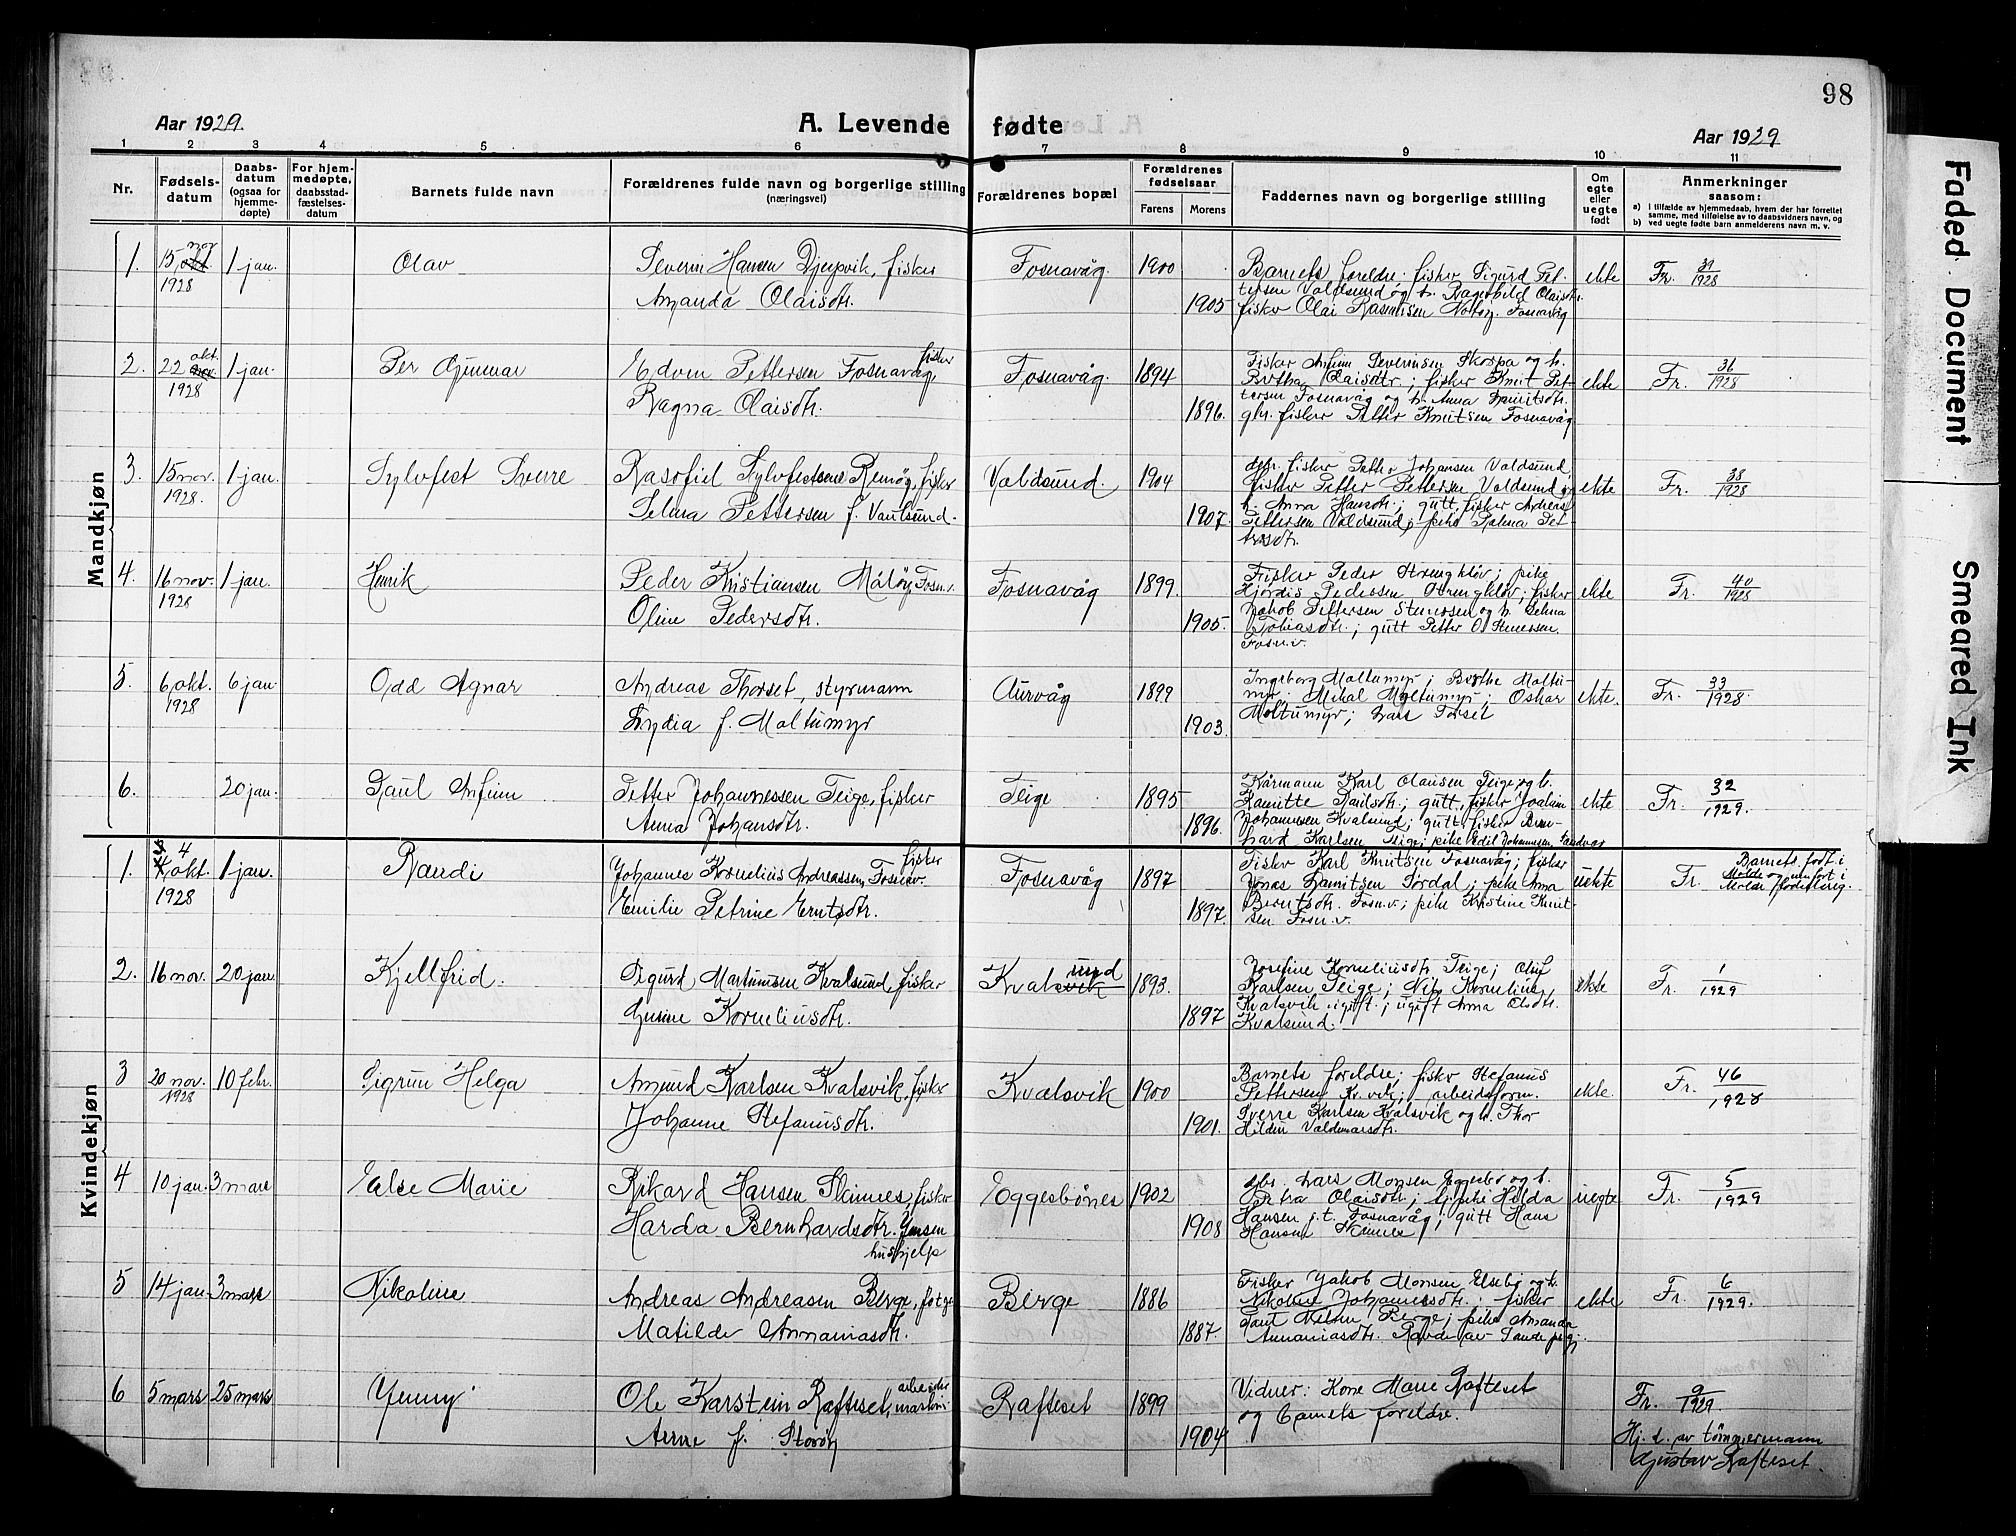 98
Aar 1929.
A. Levende fødte
Aar 1929
1 2 3 4 5 6 7 8 9 10 11
Nr.
Fødsels-
datum
Daabs-
datum
(ogsaa for
hjemme-
døpte)
For hjem-
medøpte,
daabsstad-
fæstelses-
datum
Barnets fulde navn
Forældrenes fulde navn og borgerlige stilling
(næringsvei)
Forældrenes bopæl
Forældrenes
fødselsaar
Farens Morens
Faddernes navn og borgerlige stilling
Om
egte
eller
uegte
født
Anmerkninger
saasom:
a) i tilfælde av hjemmedaab, hvem der har forrettet
samme, med tilføielse av to daabsvidners navn, og
b) ved uegte fødte barn anmelderens navn m. v.
Mandkjøn
1. 15 nov. 1928 1 jan. Olav
Severin Hansen Djupvik, fisker
Amanda Olaisdtr.
Fosnavåg. 1900 1905
Barnets foreldre; fisker Sigurd Pet-
tersen Valdsund og h. Ragnhild Olaisdtr.
fisker Olai Rasmusen Fosnavåg
ekte Fr. 39/1928
2. 22 okt. 1928 1 jan. Per Gunnar
Edvin Pettersen Fosnavåg, fisker
Ragna Olaisdtr.
Fosnavåg. 1894 1896.
Fisker Anfinn Severinsen Skorpa og h.
Bertha Olaisdtr.; fisker Knut Pet-
tersen Fosnavåg og h. Anna
gbr. fisker Petter Knutsen Fosnavåg
ekte Fr. 36/1928
3. 15 nov. 1928. 1 jan. Sylvfest Sverre
Sylvfestsen Remøy, fisker
Selma Pettersen f. Vaulsund.
Valdsund. 1904 1907.
fisker Petter Johansen Valdsund
fisker Petter Pettersen Valdsund og
h. Anna Hansdtr.; gutt, fisker Andreas
Pettersen Valdsund; pike Pet-
ersdtr.
ekte Fr. 38/1928
4. 16 nov. 1928 1 jan. Henrik
Peder Kristiansen Måløy, Fosn.v.
Oline Pedersdtr.
Fosnavåg 1899. 1905.
Fisker Peder; pike
Hjørdis Pedersen; fisker
Jakob Pettersen Stenersen og h. Selma
Tobiasdtr.; gutt Petter O. Stenersen.
Fosn.v.
ekte Fr. 40/1928
5. 6. okt. 1928 6 jan. Odd Agnar
Andreas Thorset, styrmann
Lydia f. Moltumyr
Aurvåg 1899 1903.
Ingeborg Moltumyr; Berthe Moltu-
myr; Mikal Moltumyr; Oskar
Moltumyr; Lars Torset
ekte. Fr. 33/1928.
6. 20 jan. Paul Anfinn
Petter Johannessen Teige, fisker
Anna Johansdtr.
Teige 1895 1896.
Kårmann Karl Olausen Teige og h.
Paulsdtr.; gutt, fisker Joakim
Johannessen Kvalsund; gutt fisker Bern-
hard Karlsen Teige; pike Johannessen,
ekte Fr. 32/1929.
Kvindekjøn
1. 4 okt. 1928 1 jan. Randi
Johannes Kornelius Andreassen, Fosnav. fisker
Emilie Petrine Erntsdtr.
Fosnavåg 1897 1897.
Fisker Karl Knutsen Fosnavåg; fisker
Jonas Sørdal; pike Anna
Berntsdtr. Fosn.v.; pike Kristine Knut-
sen Fosn.v.
uekte Fr. Barnet født i
Molde og innført i
Molde
2. 16 nov. 20 jan. Kjellfrid.
Sigurd Martinusen Kvalsund, fisker
Gurine Korneliusdtr.
Kvalsund 1893. 1897
Josefine Korneliusdtr. Teige; Oluf
Karlsen Teige; Nils Kornelius
Kvalsvik ugift.; ugift Anna Olsdtr.
Kvalsund.
ekte Fr. 1/1929
3 20 nov. 1928 10 febr. Sigrun Helga
Amund Karlsen Kvalsvik, fisker
Johanne Stefanusdtr.
Kvalsvik 1900 1901.
Barnets foreldre; fisker Stefanus
Pettersen Kv.vik; arbeidsform.
Sverre Karlsen Kvalsvik og h. Thor
Hildur Valdemarsdtr.
ekte. Fr. 46/1928
4 10 jan. 3 mars Else Marie
Rikard Hansen Skinnes, fisker
Harda Bernhardsdtr. Jensen
hushjelp
Eggesbønes 1902 1908
gbr. Lars Monsen Eggesbø og h.
Petra Olaisdtr.; pike Hilda
Hansen p.t. Fosnavåg; gutt Hans
Hansen
uegte Fr. 5/1929
5 14 jan. 3 mars Nikoline
Andreas Andreasen Berge,
Matilde Annaniasdtr.
Berge 1886 1887.
Fisker Jakob Monsen og h.
Nikoline Johannesdtr.; fisker
Berge; pike Amanda
Annaniasdtr.
ekte Fr. 6/1929.
6 5 mars 25 mars Jenny
Ole Karstein Rafteset, arbeider
Anne f. Storøy
Rafteset 1899 1904
Vidner: Kone Marie Rafteset
og barnets foreldre.
Fr. 9/1929.
Hj. d. av tömmermann
Gustav Rafteset.
Faded Document Smeared Ink